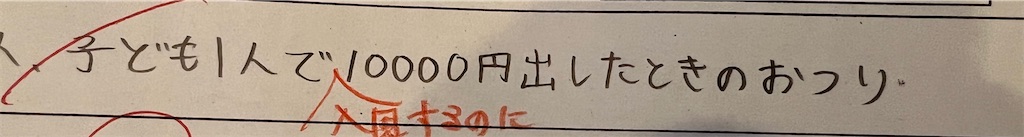 人、子ども1人で10000円出したときのおつり
入園するのに